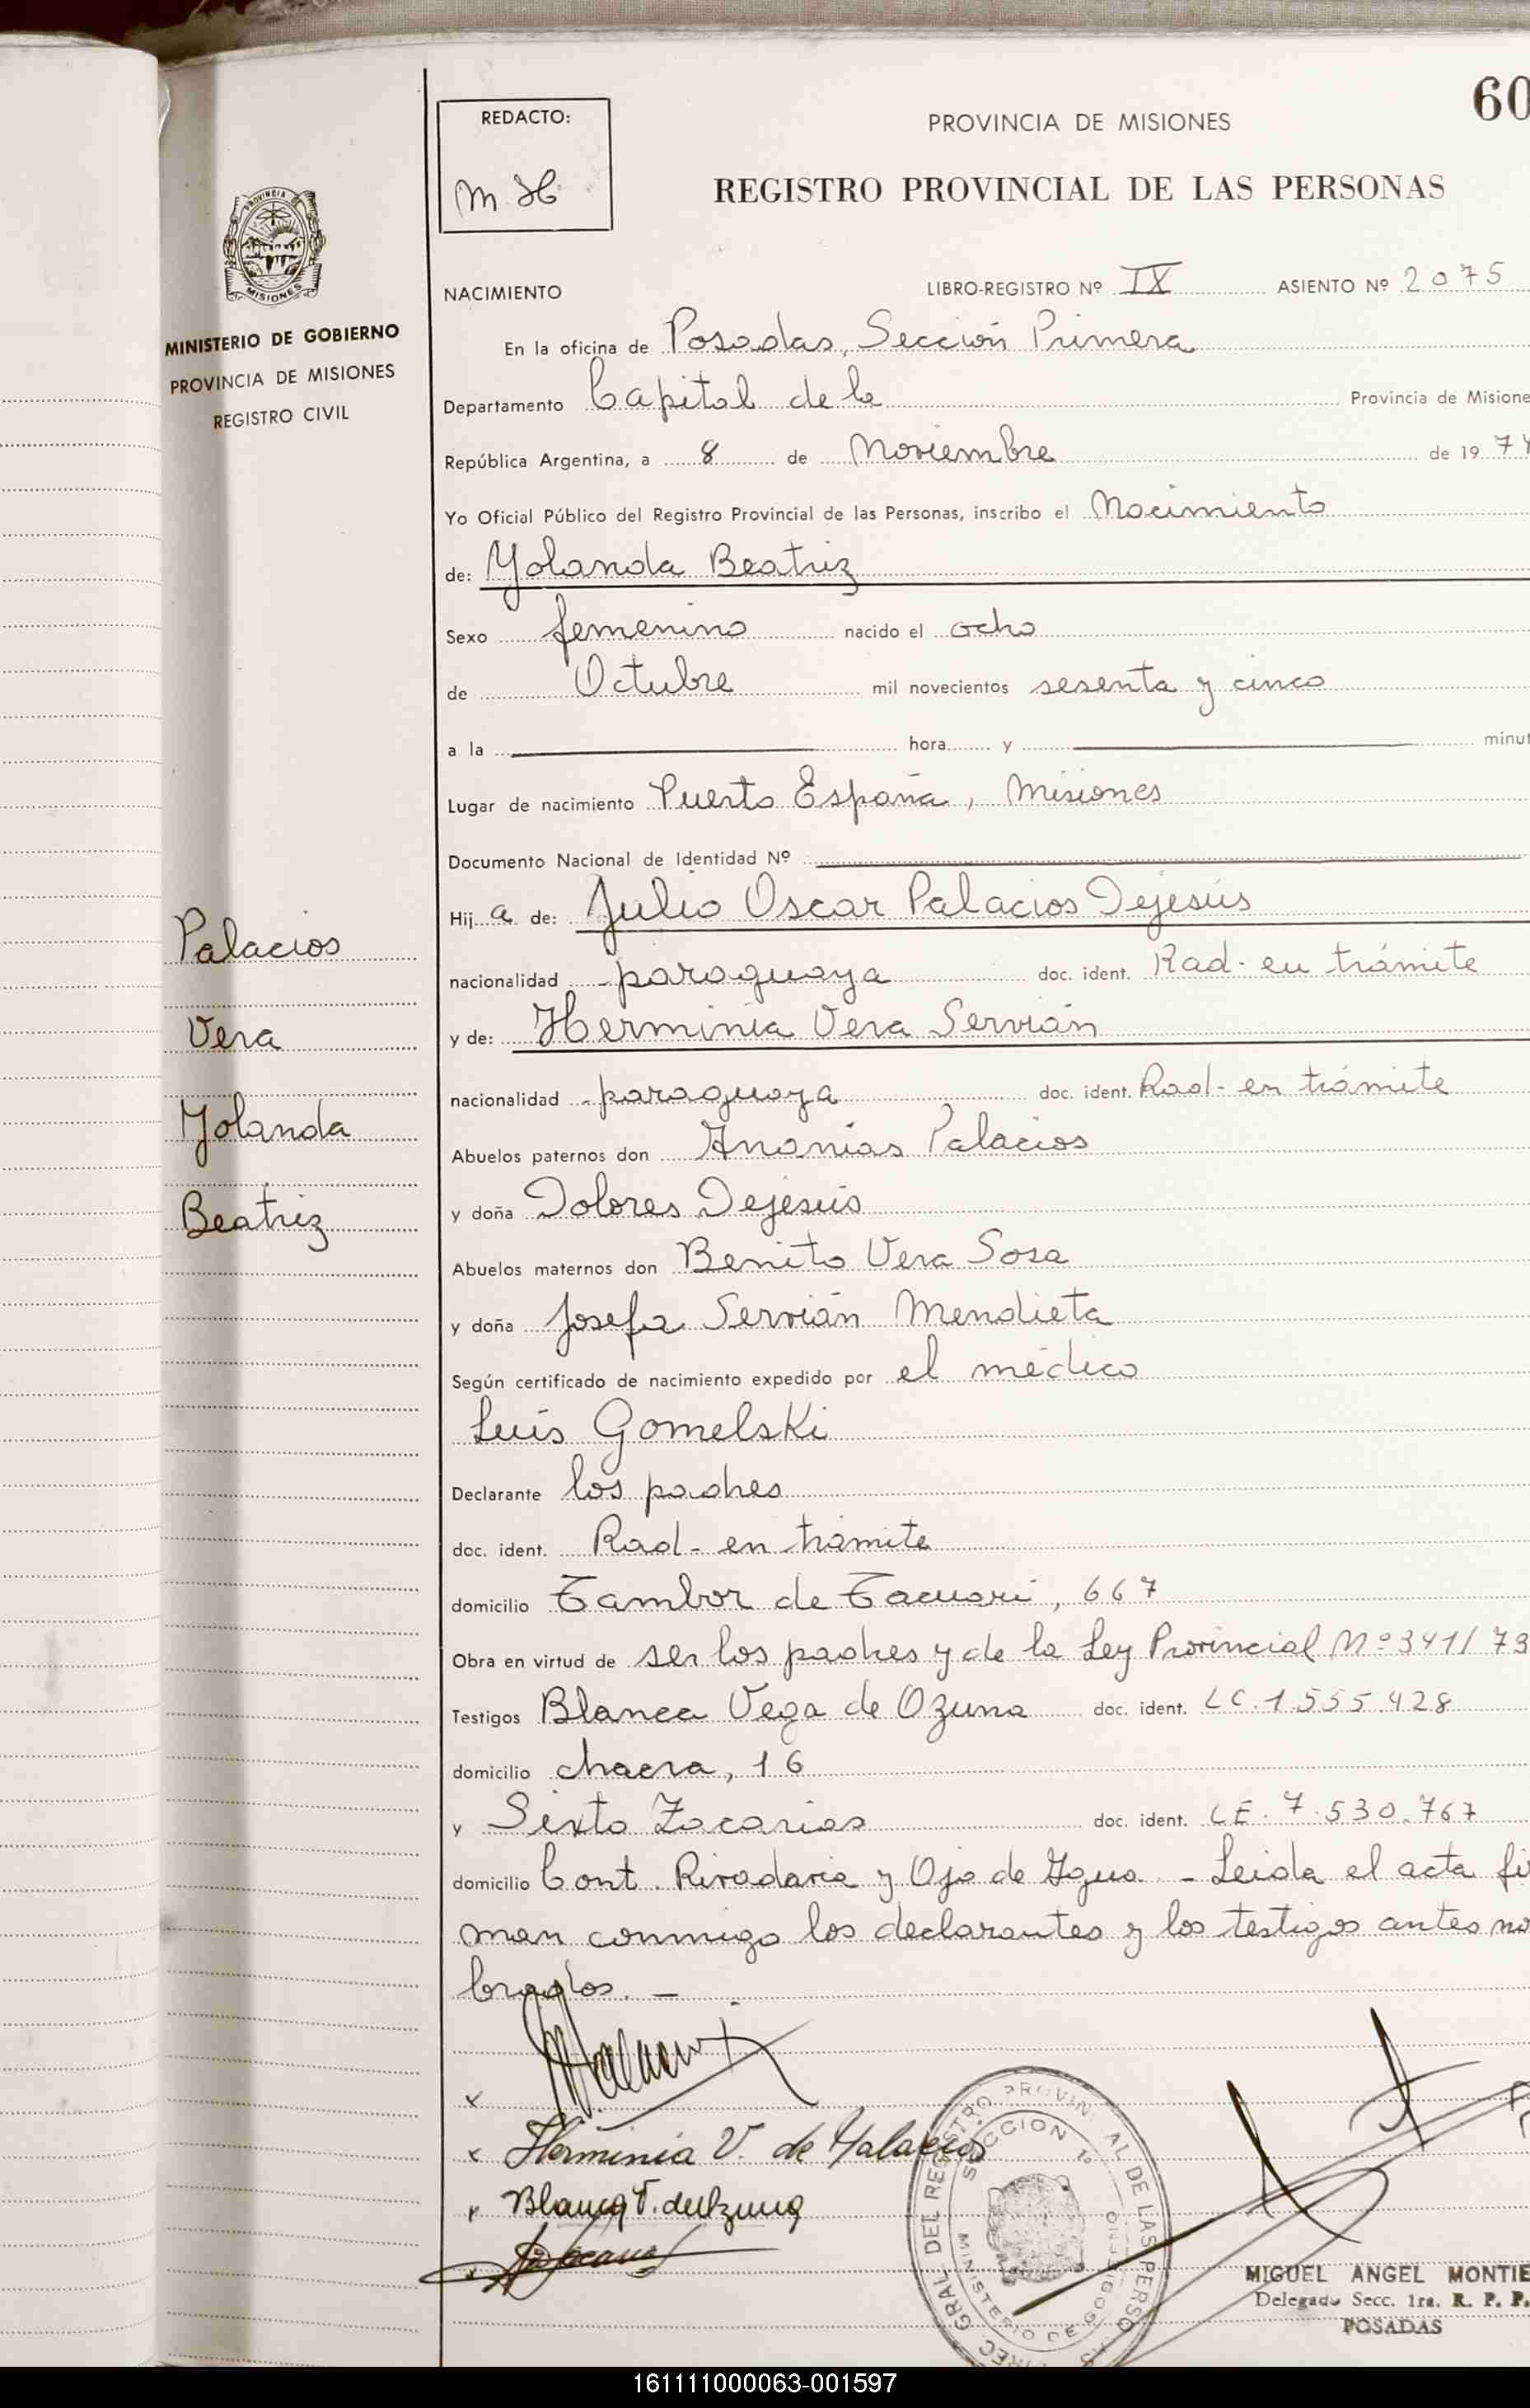 60
REDACTO:
M. H.
PROVINCIA DE MISIONES
REGISTRO PROVINCIAL DE LAS PERSONAS
PROVINCIA DE
MISIONES
MINISTERIO DE GOBIERNO
PROVINCIA DE MISIONES
REGISTRO CIVIL
NACIMIENTO LIBRO-REGISTRO Nº IX ASIENTO Nº 2075
En la oficina de Posadas, Sección Primera
Departamento Capital de la Provincia de Misione
República Argentina, a 8 de Noviembre de 1974
Yo Oficial Público del Registro Provincial de las Personas, inscribo el Nacimiento
de: Yolanda Beatriz
Sexo femenino nacido el ocho
de Octubre mil novecientos sesenta y cinco
a la hora y minut
Lugar de nacimiento Puerto España, Misiones
Documento Nacional de Identidad Nº
Hij a de: Julio Oscar Palacios Dejesús
nacionalidad paraguaya doc. ident. Rad- en trámite
y de: Herminia Vera Servián
nacionalidad paraguaya doc. ident. Rad- en trámite
Abuelos paternos don Ananías Palacios
y doña Dolores Dejesús
Abuelos maternos don Benito Vera Sosa
y doña Josefa Servián Mendieta
Según certificado de nacimiento expedido por el médico
Luis Gomelski
Declarante los padres
doc. ident. Rad- en trámite
domicilio Tambor de Tacuari, 667
Obra en virtud de ser los padres y de la Ley Provincial Nº 341/73
Testigos Blanca Vega de Ozuna doc. ident. LC 1.555.428
domicilio chacra, 16
y Sixto Zacarias doc. ident. LE. 7.530.767
domicilio Cont. Rivadavia y Ojo de Agua. - Leida el acta fi
man conmigo los declarantes y los testigos antes no
brados. -
Palacios
Vera
Yolanda
Beatriz
x
x Herminia V. de Palacios
x Blanca V. de Ozuna
DIREC. GRAL DEL REGISTRO PROVINCIAL DE LAS PERSONAS
SECCION 1º
MINISTERIO DE GOBIERNO
MIGUEL ANGEL MONTIE
Delegado Secc. 1ra. R. P. P.
POSADAS
161111000063-001597